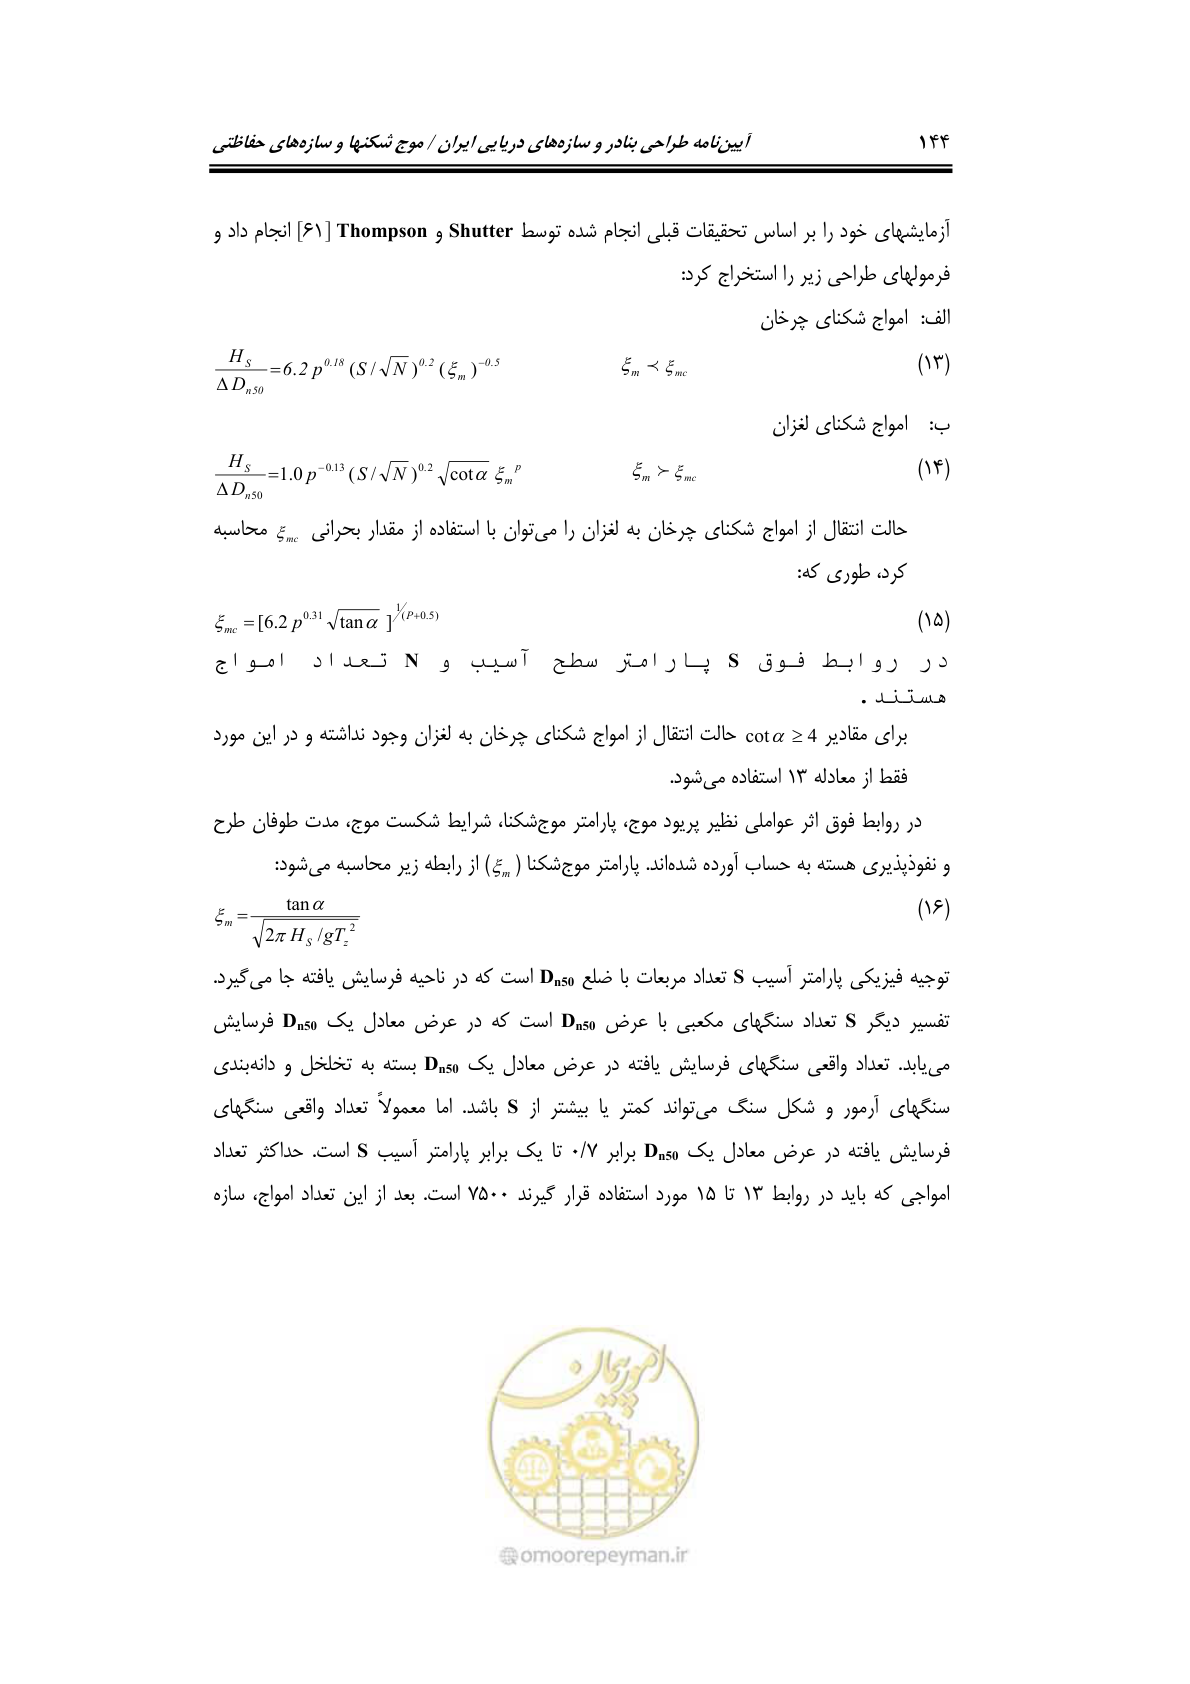 ۱۴۴ آیین‌نامه طراحی بنادر و سازه‌های دریایی ایران / موج شکنها و سازه‌های حفاظتی
آزمایشهای خود را بر اساس تحقیقات قبلی انجام شده توسط Shutter و Thompson [۶۱] انجام داد و
فرمولهای طراحی زیر را استخراج کرد:
الف: امواج شکنای چرخان
(۱۳) ξm ≺ ξmc H_S / Δ D_n50 = 6.2 p^0.18 (S/√N)^0.2 (ξm)^−0.5
ب: امواج شکنای لغزان
(۱۴) ξm ≻ ξmc H_S / Δ D_n50 = 1.0 p^−0.13 (S/√N)^0.2 √cot α ξm^p
حالت انتقال از امواج شکنای چرخان به لغزان را می‌توان با استفاده از مقدار بحرانی ξmc محاسبه
کرد، طوری که:
(۱۵) ξmc = [6.2 p^0.31 √tan α]^1/(P+0.5)
در روابط فوق S پارامتر سطح آسیب و N تعداد امواج
هستند.
برای مقادیر cot α ≥ 4 حالت انتقال از امواج شکنای چرخان به لغزان وجود نداشته و در این مورد
فقط از معادله ۱۳ استفاده می‌شود.
در روابط فوق اثر عواملی نظیر پریود موج، پارامتر موج‌شکنا، شرایط شکست موج، مدت طوفان طرح
و نفوذپذیری هسته به حساب آورده شده‌اند. پارامتر موج‌شکنا (ξm) از رابطه زیر محاسبه می‌شود:
(۱۶) ξm = tan α / √(2π H_S / gT_z^2)
توجیه فیزیکی پارامتر آسیب S تعداد مربعات با ضلع Dn50 است که در ناحیه فرسایش یافته جا می‌گیرد.
تفسیر دیگر S تعداد سنگهای مکعبی با عرض Dn50 است که در عرض معادل یک Dn50 فرسایش
می‌یابد. تعداد واقعی سنگهای فرسایش یافته در عرض معادل یک Dn50 بسته به تخلخل و دانه‌بندی
سنگهای آرمور و شکل سنگ می‌تواند کمتر یا بیشتر از S باشد. اما معمولاً تعداد واقعی سنگهای
فرسایش یافته در عرض معادل یک Dn50 برابر ۰/۷ تا یک برابر پارامتر آسیب S است. حداکثر تعداد
امواجی که باید در روابط ۱۳ تا ۱۵ مورد استفاده قرار گیرند ۷۵۰۰ است. بعد از این تعداد امواج، سازه
امور پیمان
@omoorepeyman.ir